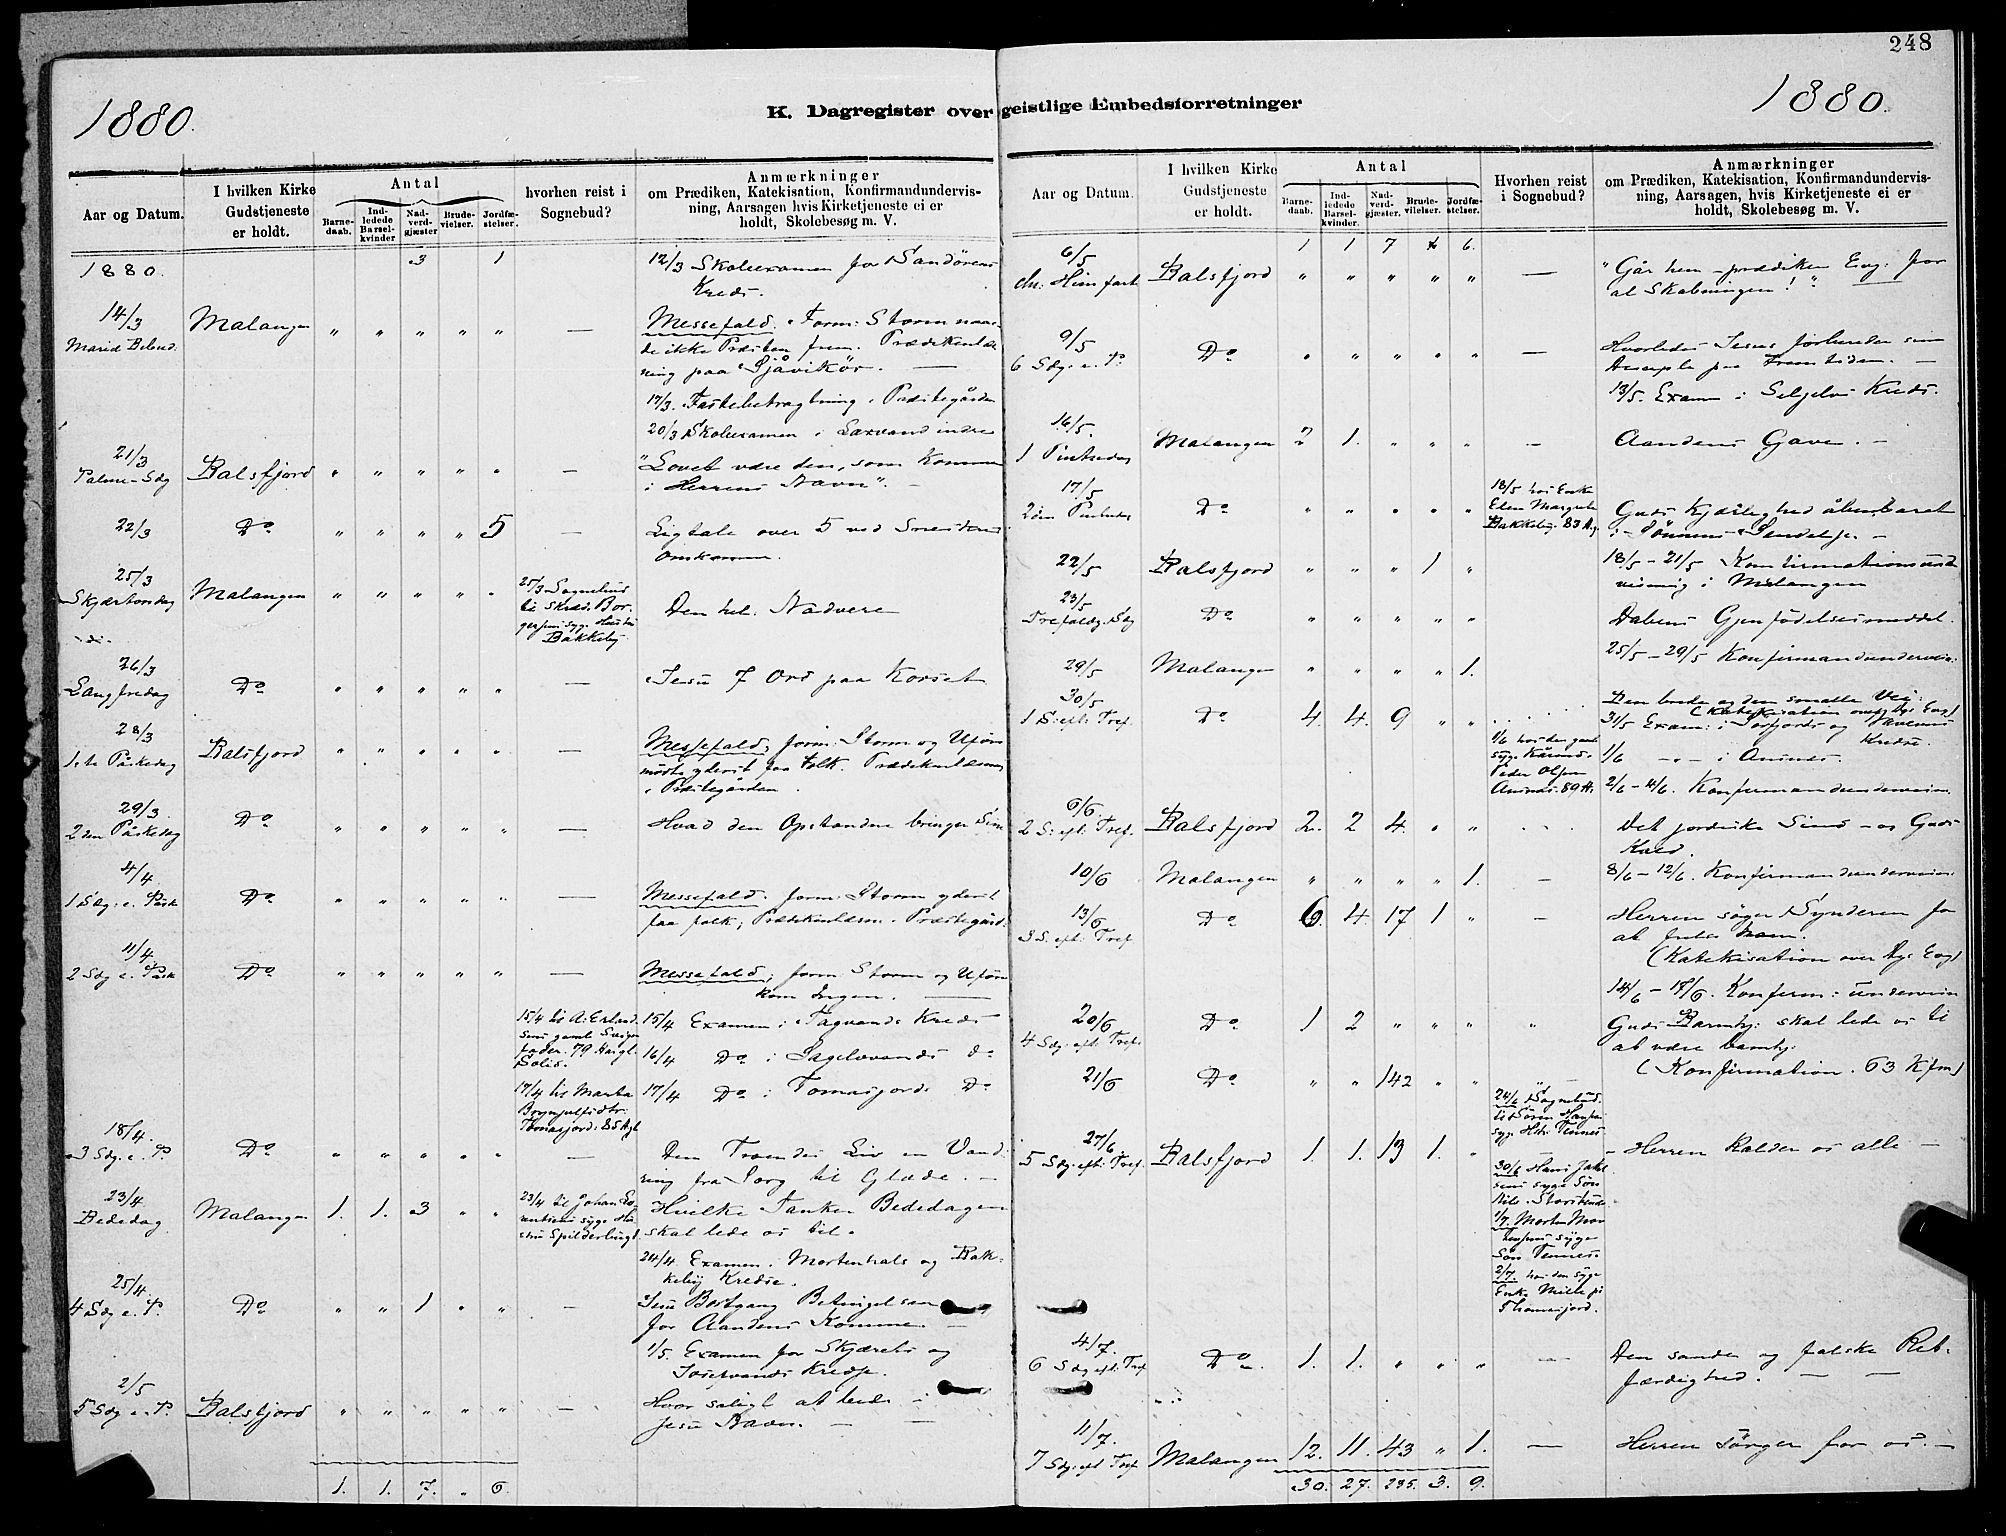 248
1880.
K. Dagregister over geistlige Embedsforretninger
1880.
Aar og Datum.
I hvilken Kirke Gudstjeneste er holdt.
Antal
Barnedaab.
Indledede Barselkvinder
Nadverdgjæster
Brudevielser.
Jordfæstelser.
hvorhen reist i Sognebud?
Anmærkninger
om Prædiken, Katekisation, Konfirmandundervis-
ning, Aarsagen hvis Kirketjeneste ei er
holdt, Skolebesøg m. V.
1880. 3 1 12/3 Skoleexamen for Sandørens
Kreds.
14/3 Malangen " " " " " — Messefald. Form: Storm naae-
Mariæ Bebud. de ikke Præsten frem. Prædikenlæs
ning paa Sjåvikør. —
17/3. Fastebetragtning i Præstegården
20/3 Skoleexamen i Laxvand indre
21/3 Balsfjord " " " " " — "Lovet være den, som kommer
Palme-Sdg i Herrens Navn". —
22/3 Do " " " " 5 — Ligtale over 5 ved
Omkomne.
25/3 Malangen " " " " " 25/3 Sognebud Den hel. Nadvere
Skjærtorsdag til Skræd. Bor-
gersens syge Hustru
Bakkeby
26/3 Do " " " " " — Jesu 7 Ord paa Korset
Langfredag
28/3 Balsfjord " " " " " — Messefald; form: Storm og Uføre
1ste Påskedag mødte yderst faa Folk. Prædikenlæsning
i Præstegården.
29/3 Do " " " " " — Hvad den Opstandne bringer Sine
2den Påskedag
4/4 Do " " " " " — Messefald. form: Storm yderst
1 Sdg. e. Påsk faa folk; Prædikenlæsn. i Præstegård.
11/4 Do " " " " " — Messefald; form: Storm og Uføre
2 Sdg e. Påsk kom Ingen. —
15/4 til A: Erland- 15/4 Examen i Tagvands Kreds
sens gamle Sviger-
fader. 79 Aar gl. 16/4 Do i Sagelvvands do
Solis.
17/4 til Marta 17/4 Do i Tomasjords Do
Brynjulfsdtr.
Tomasjord. 85 Ag.
18/4. Do " " " " " — Den Troendes Liv en Vand-
3 Sdg. e. P. ring fra Sorg til Glæde. —
23/4 Malangen 1. 1. 3 " " 23/4 til Johan Lo- Hvilke Tanker Bededagen
Bededag rentsens syge Hu- skal lede os til.
stru Spilderbugt.
24/4 Examen. Mortenhals og Bak-
keby Kredse.
25/4. Do " " 1 " " — Jesu Bortgang Betingelsen
4 Sdg e. P. for Aandens Komme. —
1/5. Examen for Skjærets og
Josefvands Kredse.
2/5 Balsfjord " " " " " — Hvor saligt at bede i
5 Sdg e. P. Jesu Navn. — —
1. 1. 7. " 6.
Aar og Datum.
I hvilken Kirke Gudstjeneste er holdt.
Antal
Barnedaab.
Indledede Barselkvinder.
Nadverdgjæster.
Brudevielser.
Jordfæstelser.
Hvorhen reist i Sognebud?
Anmærkninger
om Prædiken, Katekisation, Konfirmandundervis-
ning, Aarsagen, hvis Kirketjeneste ei er
holdt, Skolebesøg m. V.
1 1 7 " 6.
6/5 Balsfjord " " " " " — "Går hen – prædiker Evg: for
chr: Himfart al Skabningen!"
9/5 Do " " " " " — Hvorledes Jesus forbereder sine
6 Sdg. e. P. Disciple paa Fremtiden. —
13/5. Exam i Seljelvs Kreds.
16/5. Malangen 2 1. " " " — Aandens Gave. —
1 Pintsedag
17/5 Do " " " " " 18/5 hos Enke Guds Kjærlighed åbenbaret
2den Pintsedag Elen Margrete i Sønnens Sendelse. —
Bakkeby. 83 A.g
22/5 Balsfjord " " " 1 " 18/5 – 21/5 Konfirmationsund
visning i Malangen
23/5 Do " " " " " Dåbens Gjenfødelsesmeddel.
Trefoldig. Sdg
25/5 – 29/5 Konfirmandunderviisn:
29/5 Malangen " " " " 1.
30/5 Do 4. 4. 9 " " Den brede og den smalle Vej.
1 S: eft: Tref. (Katekisation over Evg)
31/5 Exam: i Sørfjords og
Kredse.
1/6 hos den gamle 1/6 –"– i Anines.
syge
Peder Olsen
Aninæs. 89 A. 2/6 – 4/6. Konfirmandunderviisn.
6/6. Balsfjord 2. 2 4. " " Det jordiske Sind – og Guds
2 S: eft: Tref. Kald.
10/6 Malangen " " " " 1. — 8/6 – 12/6. Konfirmandunderviisn:
13/6 Do 6. 4. 17 1 " — Herren søger Synderen for
3 S. eft: Tref. at frelse ham.
(Katekisation over Evg)
14/6 – 18/6. Konferm: underviisn
20/6 Do 1 2 " " " " Guds Barmhj: skal lede os til
4 Sdg. eft: Tref. at være barmhj:
21/6 Do " " 142 " " (Konfirmation. 63 Kfm)
24/6 Sognebud
til Søren Hansens
syge Hstr: Tennes.
27/6 Balsfjord 1. 1. 13 1. " — Herren kalder os alle —
5 Sdg. eft: Tref.
30/6 Hans Jakob
sens syge Søn
Nils. Storstenes
1/7. Morten Mor
tensens syge
Søn Tennes.
2/7. hos den syge
Enke
Thomasjord.
4/7. Do. 1. 1. " " " — Den sande og falske Ret-
6 Sdg eft: Tref færdighed. — —
11/7. Malangen 12. 11. 43 " 1. — Herren sørger for os. —
7 Sdg: eft Tref.
30. 27. 235. 3. 9.